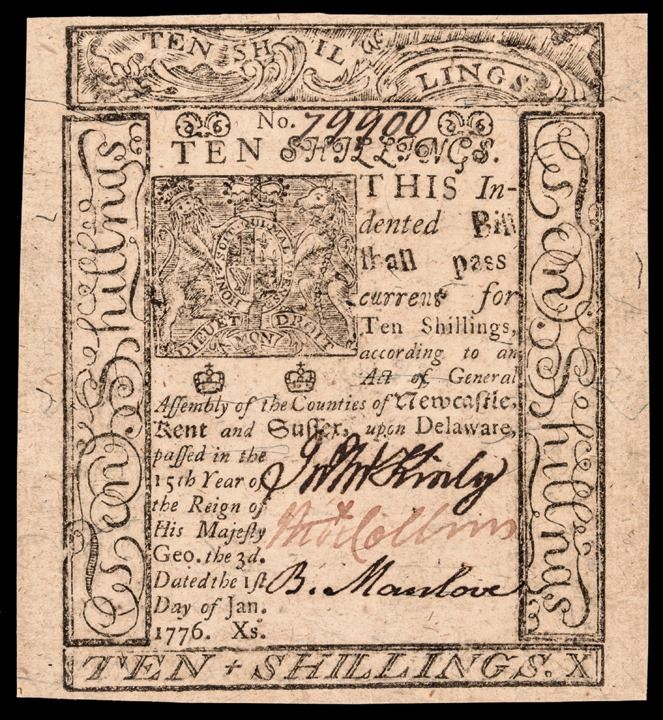 TEN SHILLINGS
No. 79900
TEN SHILLINGS.
HONI SOIT QUI MAL Y PENSE
DIEU ET MON DROIT
THIS In-
dented Bill
shall pass
current for
Ten Shillings,
according to an
Act of General
Assembly of the Counties of Newcastle,
Kent and Sussex, upon Delaware,
passed in the
15th Year of
the Reign of
His Majesty
Geo. the 3d.
Dated the 1st
Day of Jan.
1776. Xs.
Jno McKinly
Thos Collins
B. Manlove
Ten Shillings
Ten Shillings
TEN + SHILLINGS. X